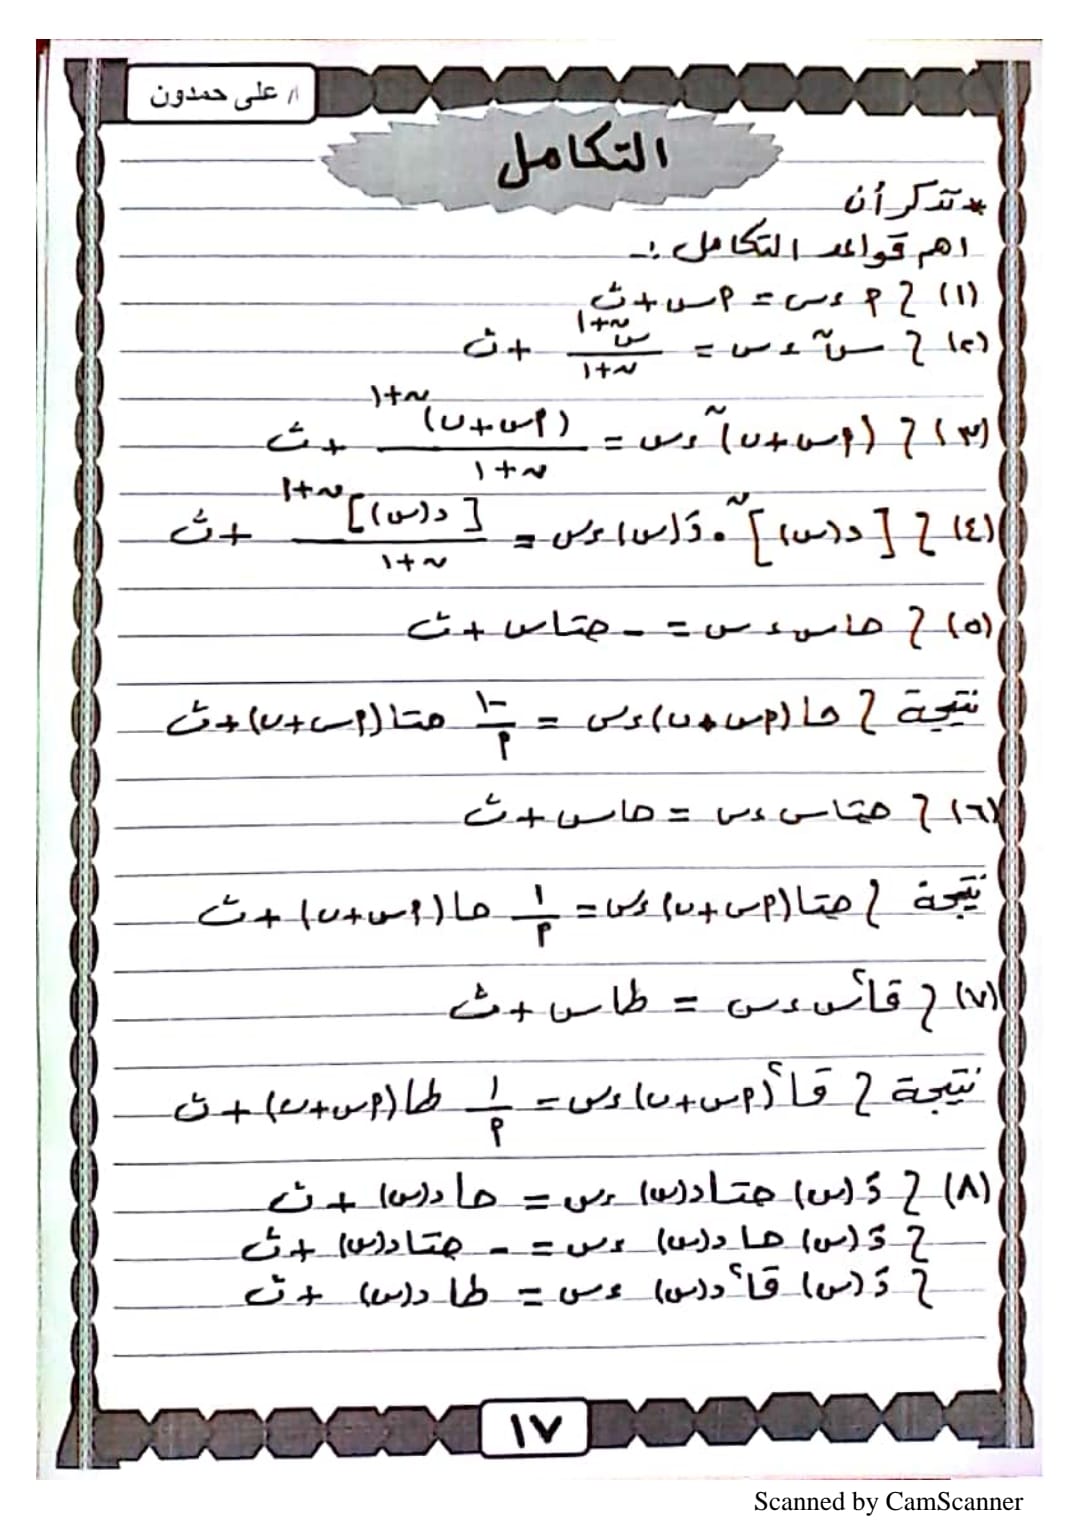 ا/ على حمدون
التكامل
* تذكر أن
اهم قواعد التكامل :-
(١) ∫ ٢ ءس = ٢س + ث
(٢) ∫ س^ن ءس = س^(ن+١) / (ن+١) + ث
(٣) ∫ (٢س+ب)^ن ءس = (٢س+ب)^(ن+١) / (ن+١) + ث
(٤) ∫ [د(س)]^ن . دَ(س) ءس = [د(س)]^(ن+١) / (ن+١) + ث
(٥) ∫ حاس ءس = - حتاس + ث
نتيجة ∫ حا(٢س+ب) ءس = -١/٢ حتا(٢س+ب) + ث
(٦) ∫ حتاس ءس = حاس + ث
نتيجة ∫ حتا(٢س+ب) ءس = ١/٢ حا(٢س+ب) + ث
(٧) ∫ قا٢س ءس = طاس + ث
نتيجة ∫ قا٢(٢س+ب) ءس = ١/٢ طا(٢س+ب) + ث
(٨) ∫ دَ(س) حتاد(س) ءس = حا د(س) + ث
∫ دَ(س) حا د(س) ءس = - حتاد(س) + ث
∫ دَ(س) قا٢ د(س) ءس = طا د(س) + ث
١٧
Scanned by CamScanner